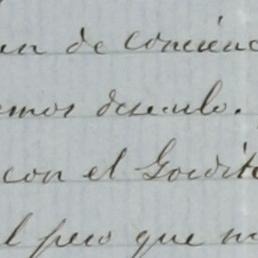 en de concienc
emos deseulo.
con el Gordito
l pero que m